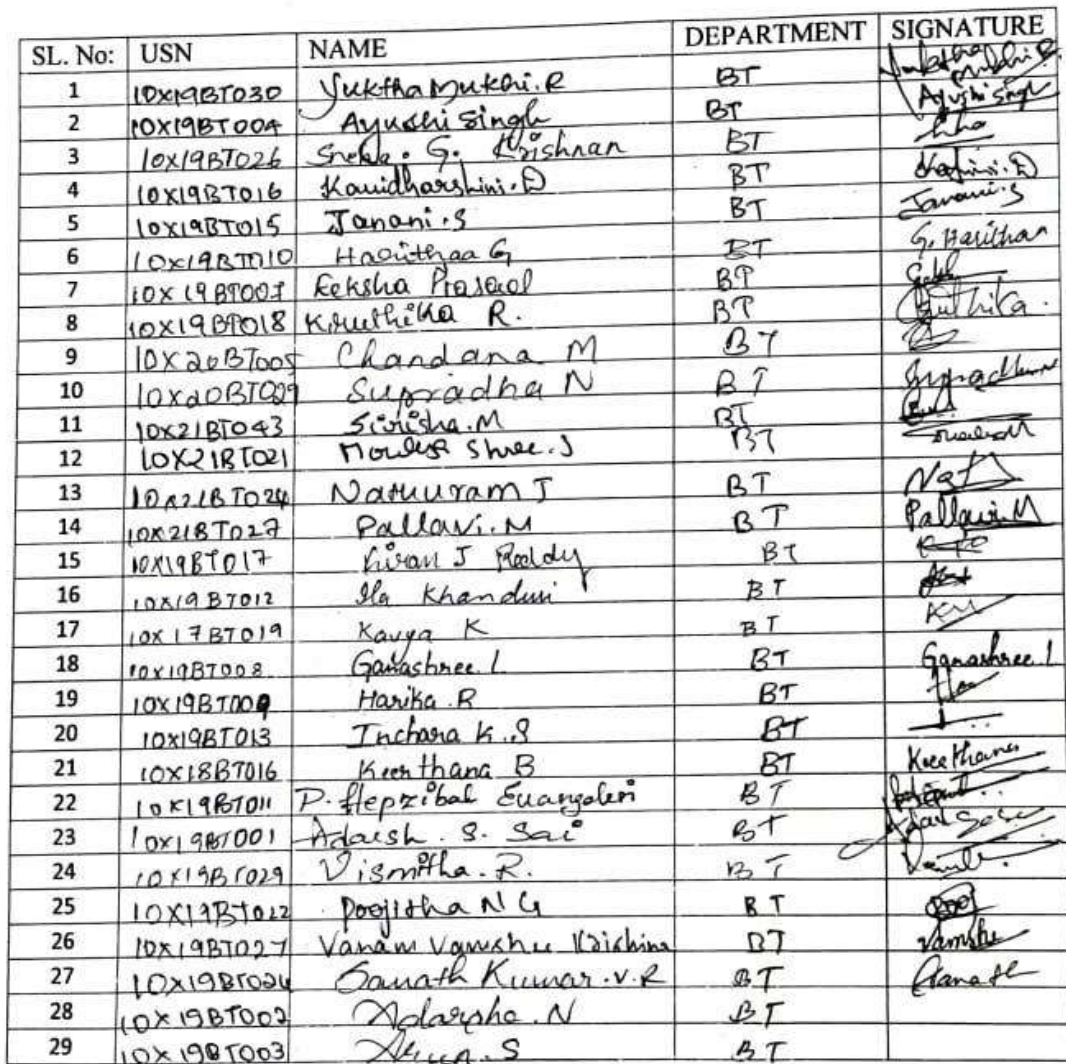 SL. No: USN NAME DEPARTMENT SIGNATURE
1 10X19BT030 Yuktha Mukhi.R BT Yuktha Mukhi R
2 10X19BT004 Ayushi Singh BT Ayushi Singh
3 10X19BT026 Sneha. G. Krishnan BT
4 10X19BT016 Kavidharshini.D BT
5 10X19BT015 Janani.S BT Janani.S
6 10X19BT010 Harithaa G BT G. Harithaa
7 10X19BT007 Eeksha Prasad BT
8 10X19BT018 Kiruthika R. BT
9 10X20BT005 Chandana M BT
10 10X20BT029 Supradha N BT Supradha N
11 10X21BT043 Sirisha.M BT
12 10X21BT021 Shree.J BT
13 10X21BT024 Nathuram J BT Nat
14 10X21BT027 Pallavi.M BT Pallavi.M
15 10X19BT017 Kiran J Reddy BT
16 10X19BT012 Ila Khanduri BT
17 10X17BT019 Kavya K BT
18 10X19BT008 Ganashree.L BT Ganashree.L
19 10X19BT009 Harika.R BT
20 10X19BT013 Inchara K.S BT
21 10X18BT016 Keerthana B BT Keerthana
22 10X19BT011 P. Hepzibah Euangelin BT
23 10X19BT001 Adarsh. S. Sai BT
24 10X19BT029 Vismitha. R. BT
25 10X19BT022 Poojitha N G BT Pooj
26 10X19BT027 Vanam Vamshee Krishna BT Vamshe
27 10X19BT024 Sanath Kumar.V.R BT Sanath
28 10X19BT002 Adarsha.N BT
29 10X19BT003 BT